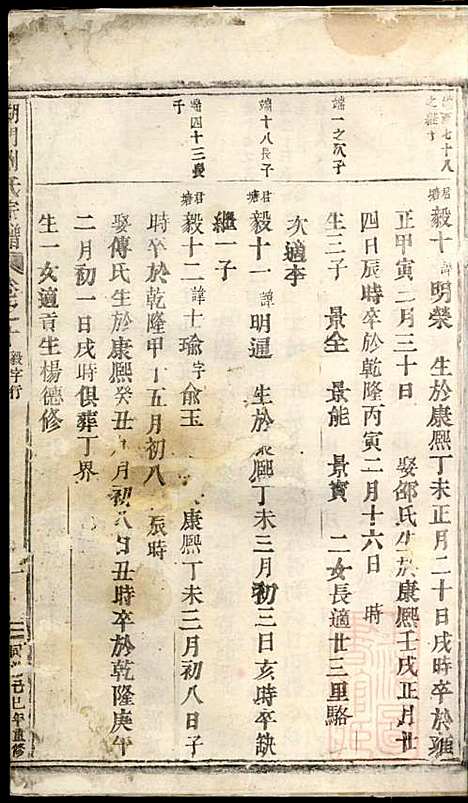 之繼子
君塘毅十諱明榮 生於康熙丁未正月二十日戌時卒於雍
正甲寅二月三十日 娶邵氏生於康熙壬戌正月廿
四日辰時卒於乾隆丙寅二月十六日 時
端一之次子
生三子 景全 景能 景寶 二女長適廿三里駱
次適李
端十八長子
君塘毅十一諱明通 生於康熙丁未三月初三日亥時卒缺
繼一子
端四十三長子
君塘毅十二諱士瑜字俞玉 康熙丁未三月初八日子
時卒於乾隆甲子五月初八 辰時
娶傅氏生於康熙癸丑 月初八日丑時卒於乾隆庚午
二月初一日戌時俱葬丁界
生一女適貢生楊德修
氏宗譜
毅字行
巳年重修